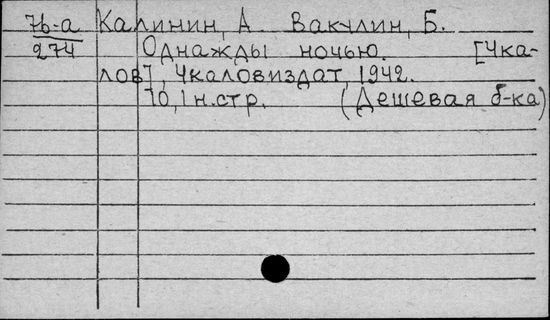 Ъ-а Калинин, А Вакулин, Б.
274 Однажды ночью. [Чка-
лов], Чкаловиздат, 1942.
70, 1 н. стр. (Дешевая б-ка)